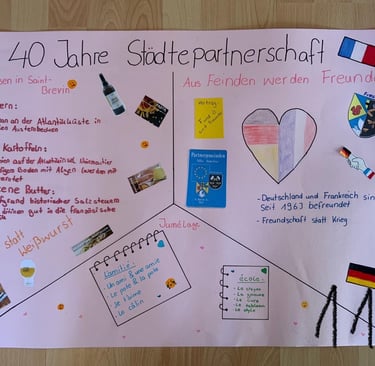 40 Jahre Städtepartnerschaft
sen in Saint-
Brevin
ern:
an an der Atlantikküste in
en Austernbecken
Kartoffeln:
en auf der Atlantikinsel Noirmoutier
igen Boden mit Algen
ene Butter:
grund historischer Salzsteuern
gut in die französische
statt
Weißwurst
Aus Feinden werden Freunde
Vertrag
Partnergemeinde
- Deutschland und Frankreich sin
Seit 1963 befreundet
- Freundschaft statt Krieg
Jumelage
Famille:
- Un ami & une amie
- Le père & la
- Je t'aime
- Le câlin
école:
- Le crayon
- La gomme
- Le livre
- Le tableau
- Le stylo
11